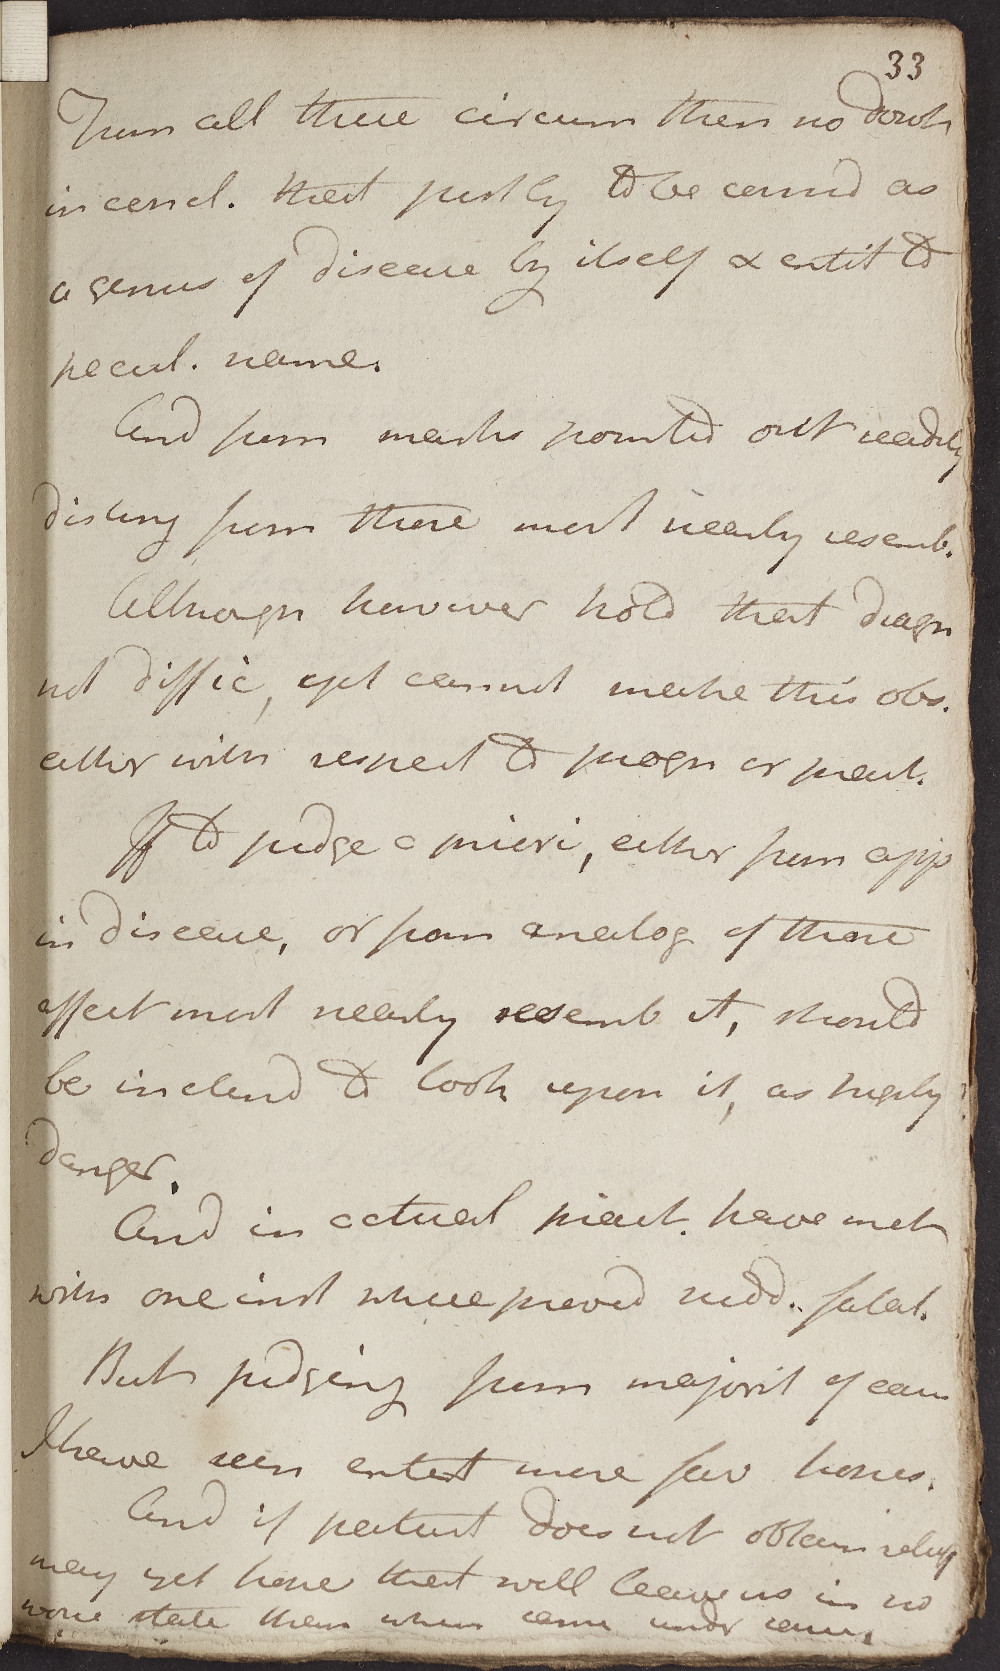 33
From all these circum then no doubt
in concl. that justly to be consid as
a genus of disease by itself & entit to
pecul. name.
And from marks pointed out readily
disting from those most nearly resemb.
Although however hold that diagn
not diffic, yet cannot make this obs.
either with respect to progn or pract.
If to judge a priori, either from app
in disease, or from analog of those
affect most nearly resemb it, should
be inclend to look upon it, as highly
danger.
And in actual pract. have met
with one inst where proved sudd.. fatal.
But judging from majorit of cases
I have seen entert more fav hopes.
And if patient does not obtain relief
may yet hope that will leave us in no
worse state than when came under care.